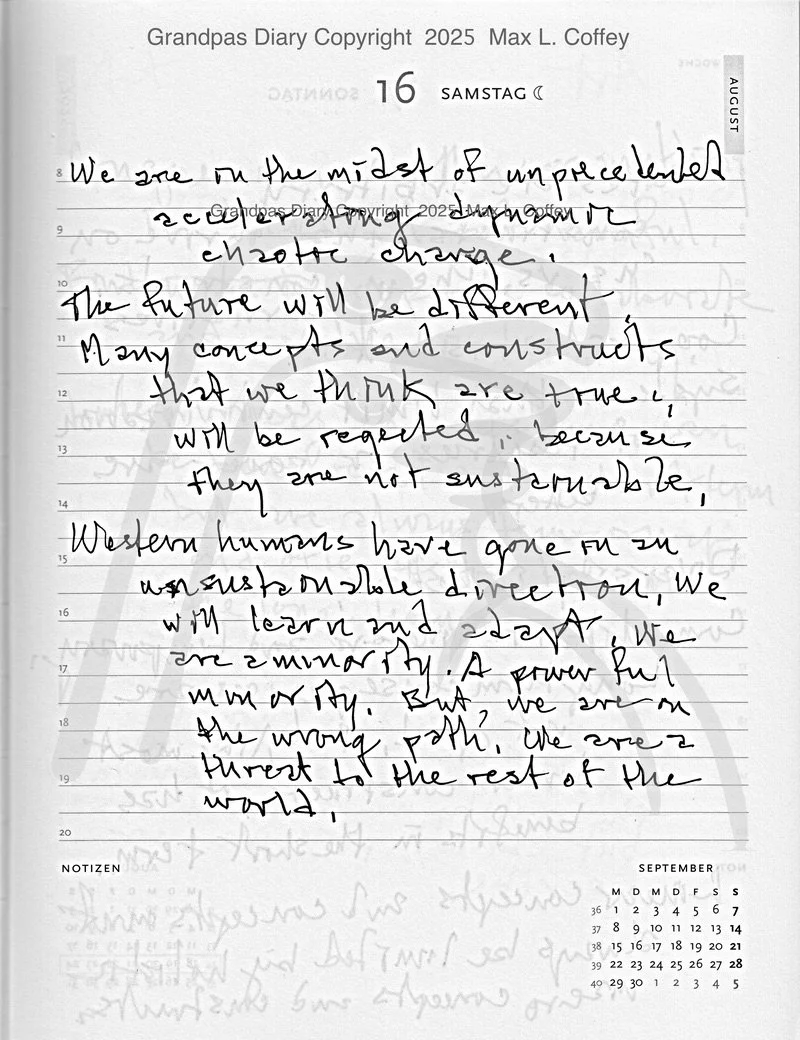 Grandpas Diary Copyright 2025 Max L. Coffey
16 SAMSTAG ☾
AUGUST
8 We are in the midst of unprecedented
Grandpas Diary Copyright 2025 Max L. Coffey
accelerating dynamic
9
chaotic change.
10
The future will be different.
11 Many concepts and constructs
12 that we think are true,
will be regected, because
13
they are not sustainable,
14
Western humans have gone in an
15
unsustainable direction, We
16 will learn and adapt, We
17 are a minority. A powerful
minority. But, we are on
18
the wrong path, We are a
19 threat to the rest of the
world,
20
NOTIZEN
SEPTEMBER
M D M D F S S
36 1 2 3 4 5 6 7
37 8 9 10 11 12 13 14
38 15 16 17 18 19 20 21
39 22 23 24 25 26 27 28
40 29 30 1 2 3 4 5